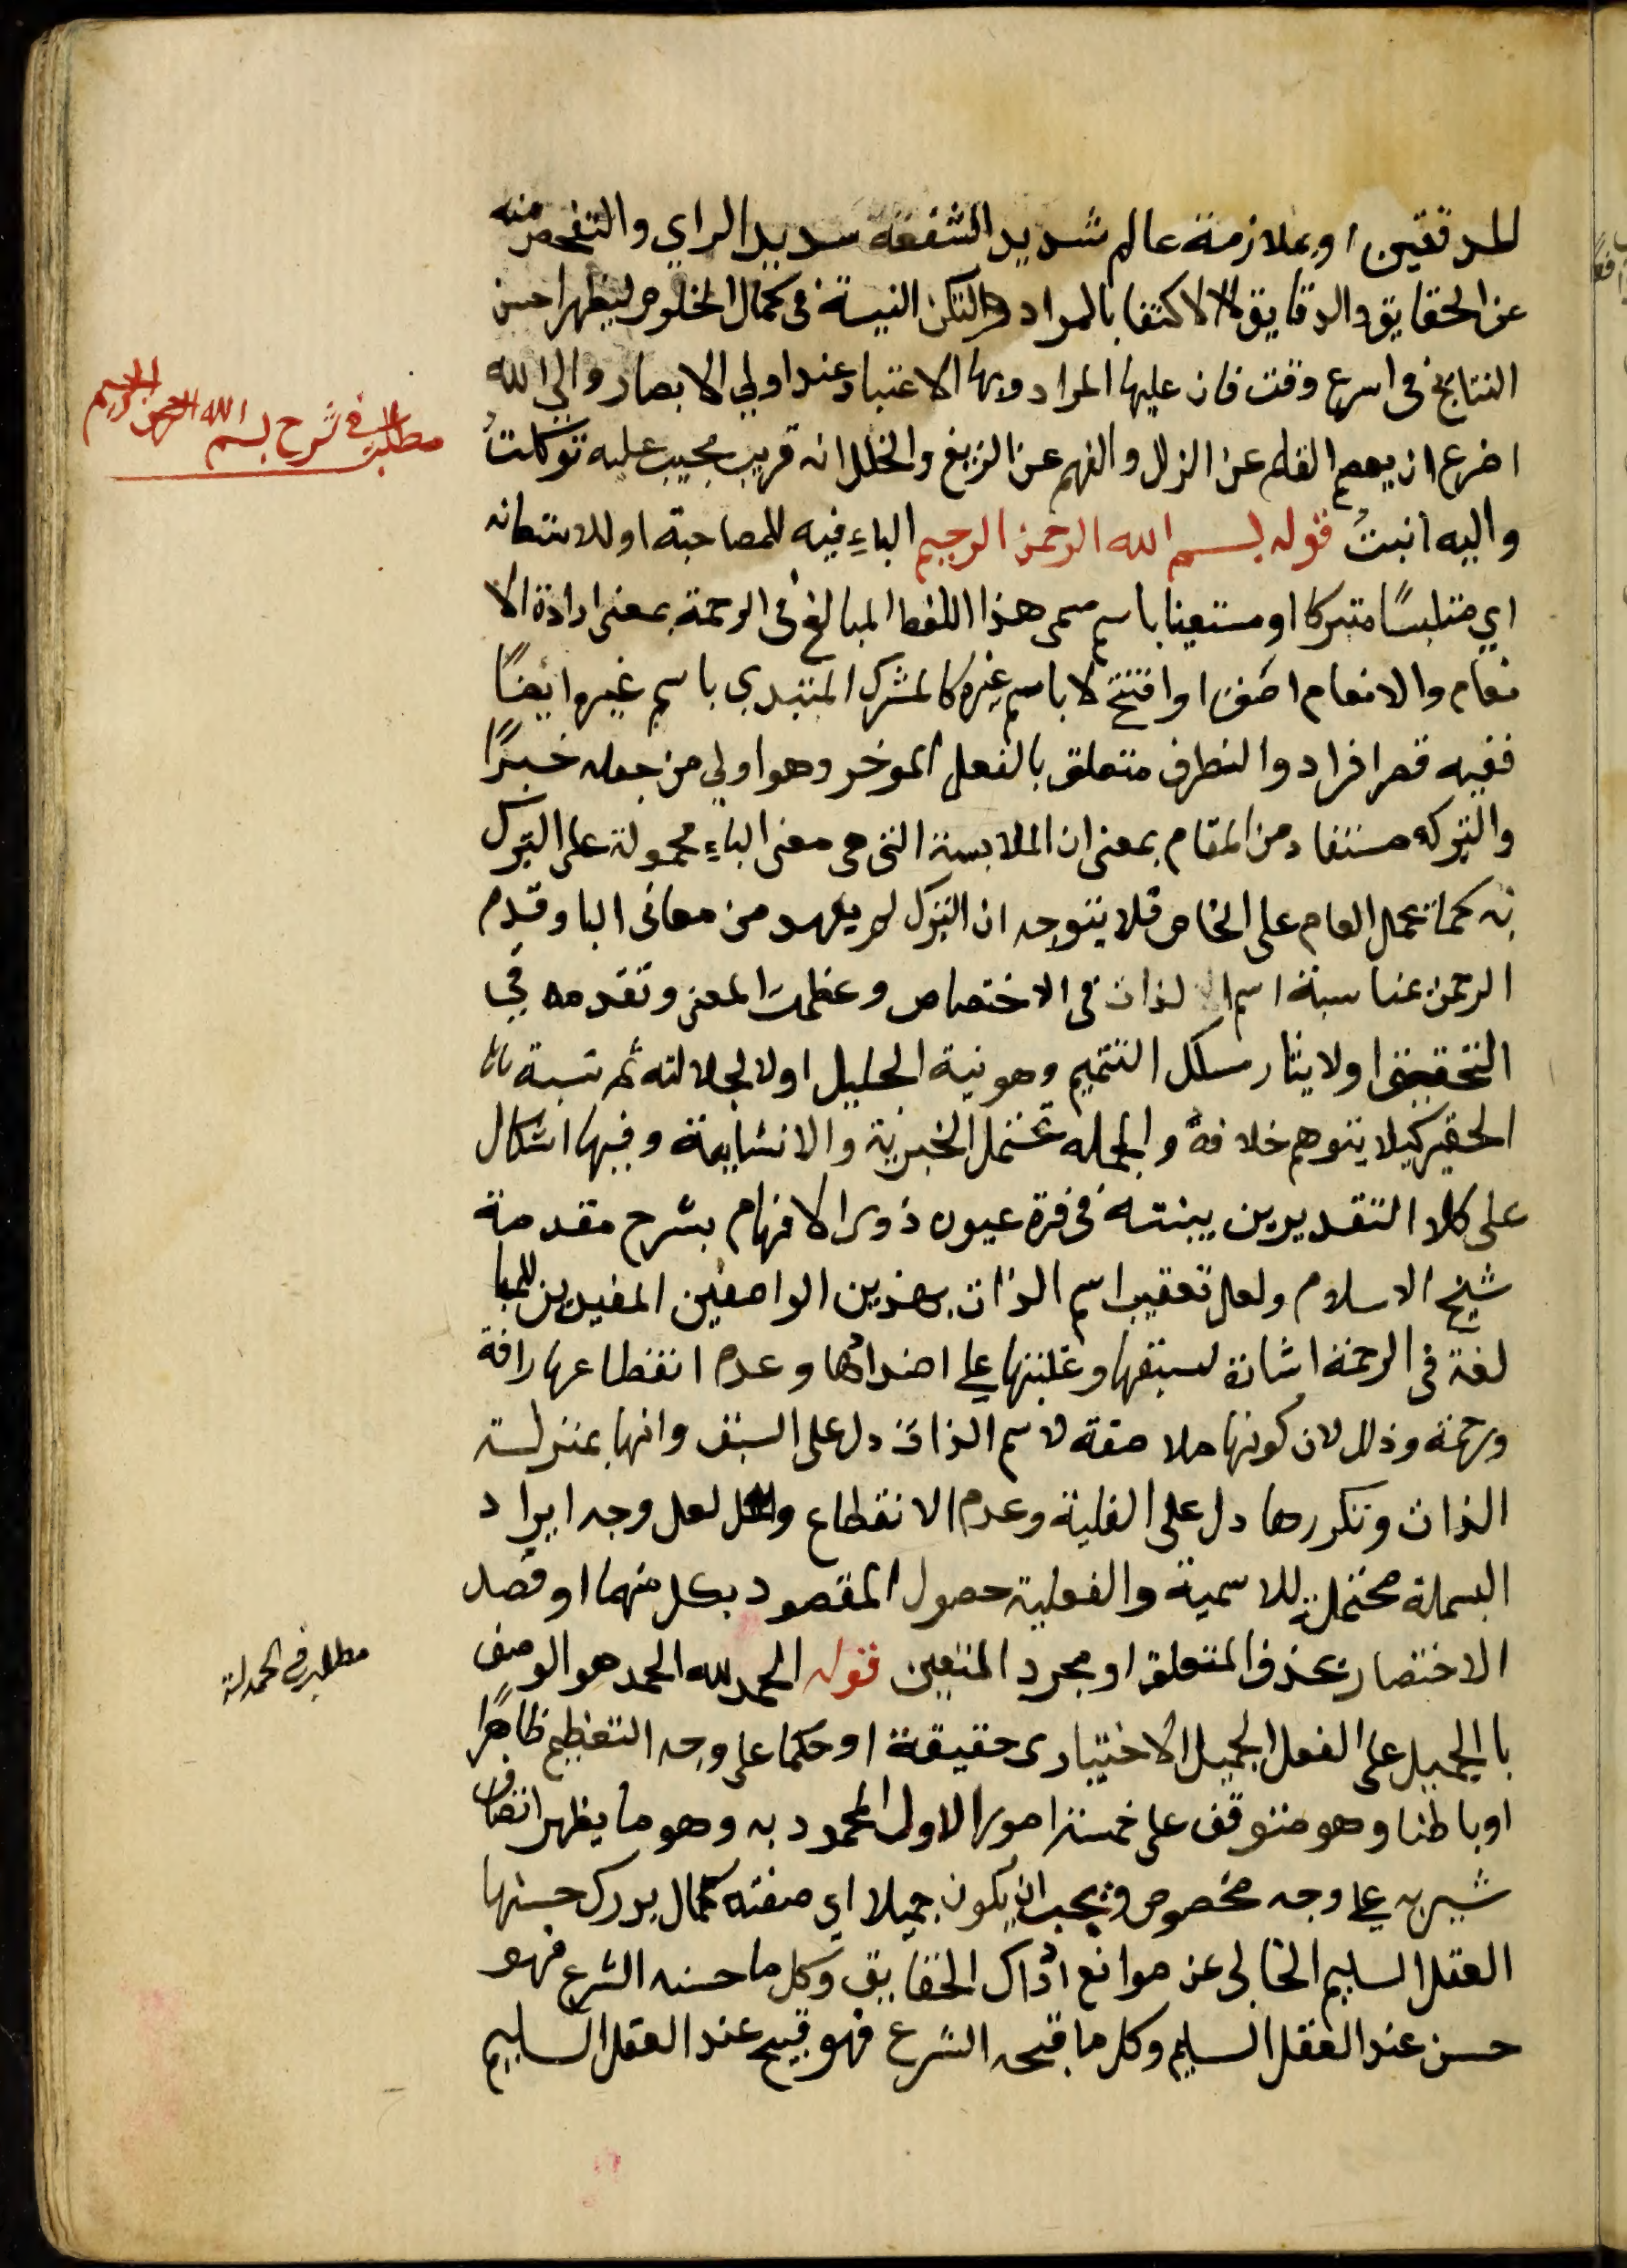 للمدققين او بملازمة عالم شديد الشفقة سديد الراي والتفحص منه
عن الحقايق والدقايق لا الاكتفا بالمراد ولتكن النية في كمال الخلوص ليظهر احسن
النتايج في اسرع وقت فان عليها المراد وبها الاعتبار عند اولي الابصار والي الله
اضرع ان يعصم القلم عن الزلل والفهم عن الزيغ والخلل انه قريب مجيب عليه توكلتُ
واليه انبتُ قوله بسم الله الرحمن الرحيم الباءِ فيه للمصاحبة او للاستعانه
اي متلبسًا متبركا او مستعينا باسم مسمى هذا اللفظ المبالغ في الرحمة بمعنى ارادة الا
نعام والانعام اصنف او افتتح لا باسم غيره كالمشرك المبتدي باسم غيره ايضًا
ففيه قصر افراد والظرف متعلق بالفعل الموخر وهو اولي من جعله خبرًا
والتبرك مستفاد من المقام بمعنى ان الملابسة التي هي معنى الباءِ محمولة على التبرك
به كما تحمل العام على الخاص فلا يتوجه ان التبرك لم يعهد من معاني البا وقدم
الرحمن بمناسبة اسم الذات في الاختصاص وعظمت المعنى وتقدمه في
التحقيق اولايثار مسلك التتميم وهو نية الجليل اولا لجلالته ثم نسبة
الحقير كيلا يتوهم خلافه والجمله تحتمل الخبرية والانشايية وفيها اشكال
على كلا التقديرين بينته في قرة عيون ذوى الافهام بشرح مقدمة
شيخ الاسلام ولعل تعقيب اسم الذات بهذين الواصفين المفيدين للمبا
لغة في الرحمة اشارة لسبقها وغلبتها علي اضدادها وعدم انقطاعها رافة
ورحمة وذلك لان كونها ملاصقة لاسم الذات دل على السبق وانها بمنزلت
الذات وتكررها دل على الغلبة وعدم الانقطاع لعل وجه ايراد
البسملة محتملة للاسمية والفعلية حصول المقصود بكل منهما او قصد
الاختصار بحذف المتعلق او مجرد المتعين قوله الحمد لله الحمد هو الوصف
با الجميل على الفعل الجميل الاختيارى حقيقة او حكما على وجه التعظيم ظاهرًا
او باطنا وهو متوقف على خمسة امور الاول المحمود به وهو ما يظهر اتصاف
شيء به علي وجه مخصوص ويجب ان يكون جميلا اي صفته كمال يدرك حسنها
العقل السليم الخالى عن موانع ادراك الحقايق وكل ما حسنه الشرع فهو
حسن عند العقل السليم وكل ما قبحه الشرع فهو قبيح عند العقل السليم
مطلب في شرح بسم الله الرحمن الرحيم
مطلب في الحمدلة